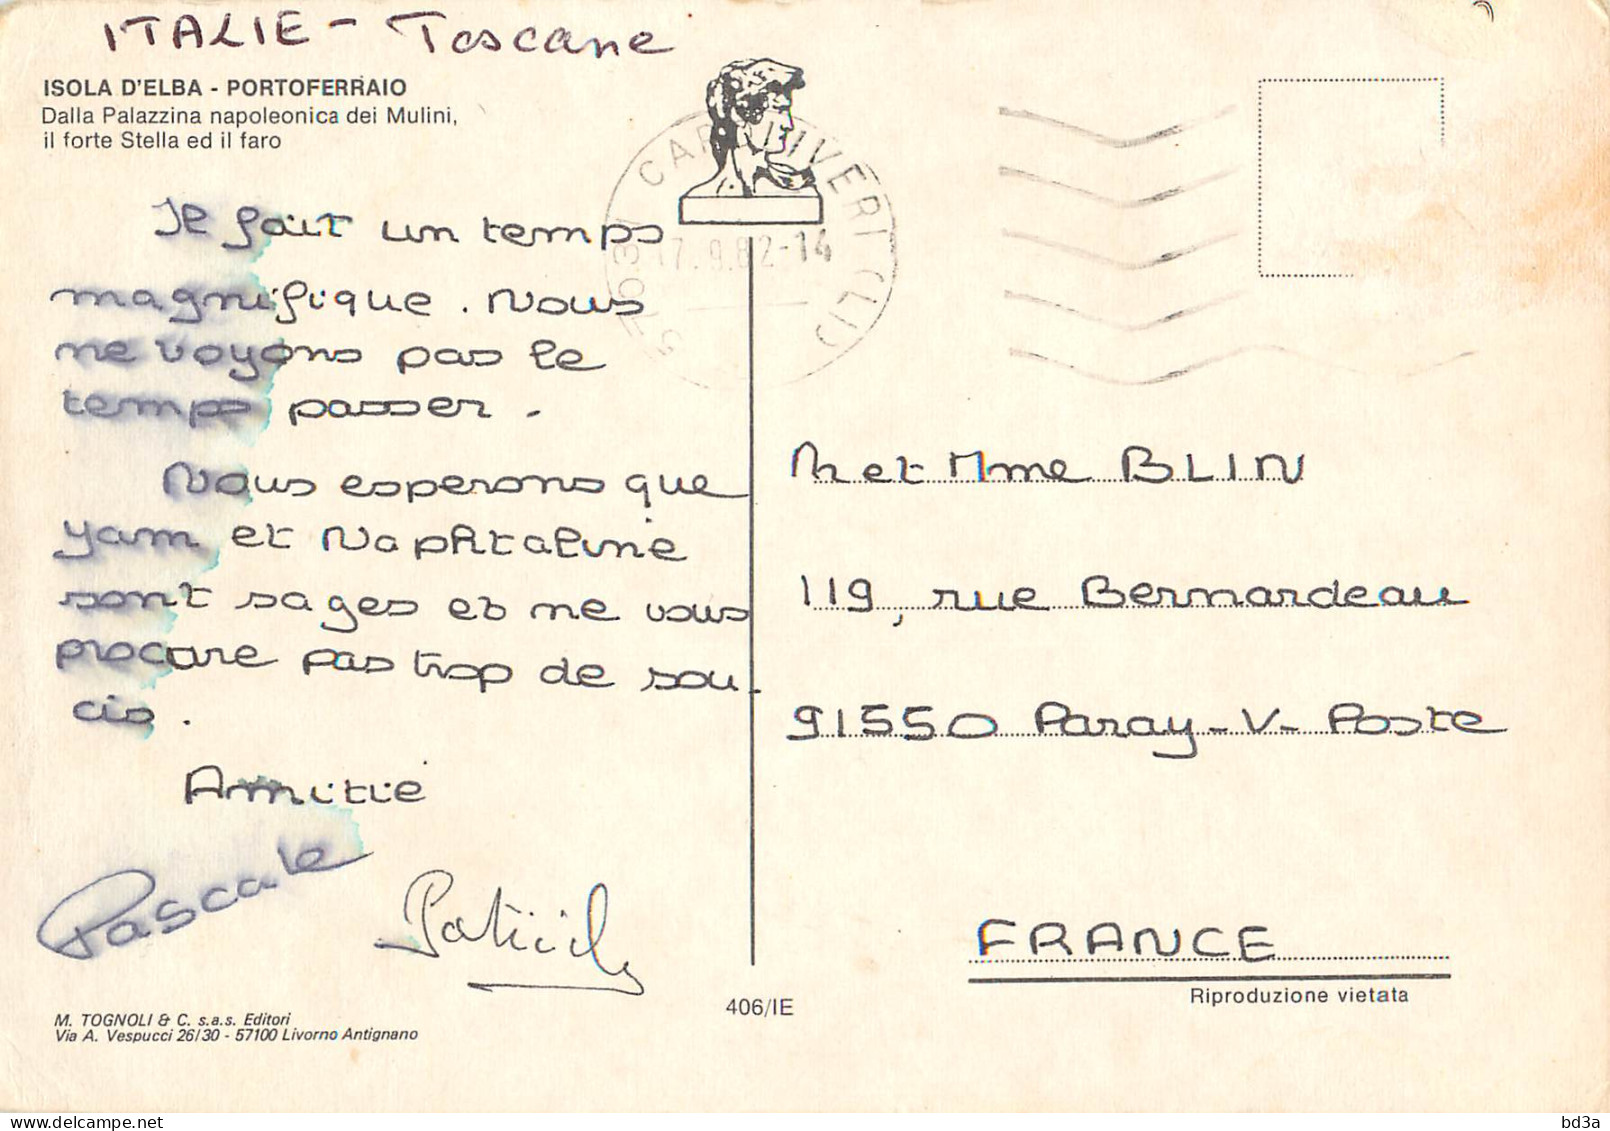 ITALIE - Toscane
ISOLA D'ELBA - PORTOFERRAIO
Dalla Palazzina napoleonica dei Mulini,
il forte Stella ed il faro
Je fait un temps
magnifique. Nous
ne voyons pas le
temps passer.
Nous esperons que
yam et Naphtaline
sont sages et ne vous
procure pas trop de sou-
cis.
Amitié
Pascale
M. TOGNOLI & C. s.a.s. Editori
Via A. Vespucci 26/30 - 57100 Livorno Antignano
57031 CAPOLIVERI (LI)
17.9.82-14
406/IE
M et Mme BLIN
119, rue Bernardeau
91550 Paray-V-Poste
FRANCE
Riproduzione vietata
bd3a